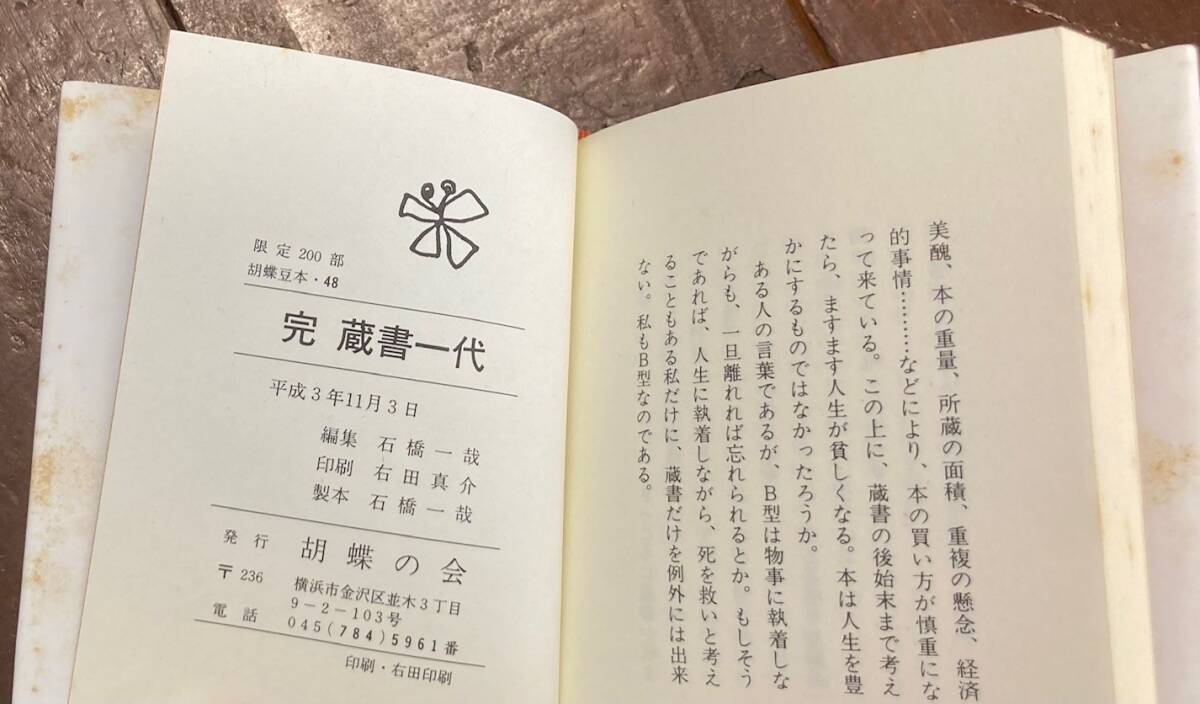 美醜、本の重量、所蔵の面積、重複の懸念、経済
的事情………などにより、本の買い方が慎重にな
って来ている。この上に、蔵書の後始末まで考え
たら、ますます人生が貧しくなる。本は人生を豊
かにするものではなかったろうか。
ある人の言葉であるが、B型は物事に執着しな
がらも、一旦離れれば忘れられるとか。もしそう
であれば、人生に執着しながら、死を救いと考え
ることもある私だけに、蔵書だけを例外には出来
ない。私もB型なのである。
限定200部
胡蝶豆本・48
完 蔵書一代
平成3年11月3日
編集 石橋一哉
印刷 右田真介
製本 石橋一哉
発行 胡蝶の会
〒236 横浜市金沢区並木3丁目
9-2-103号
電話 045(784)5961番
印刷・右田印刷